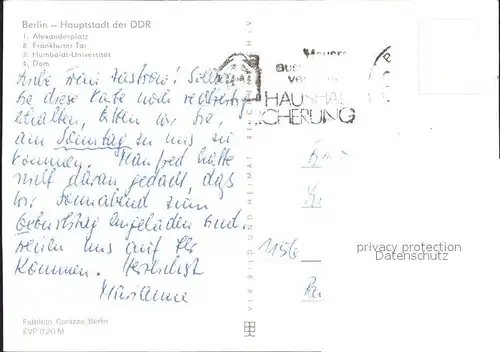 Berlin – Hauptstadt der DDR
1. Alexanderplatz
2. Frankfurter Tor
3. Humboldt-Universität
4. Dom
Liebe Frau Zastrow! Sollten
Sie diese Karte noch rechtzeitig
erhalten, bitten wir Sie,
am Sonntag zu uns zu
kommen. Manfred hatte
nicht daran gedacht, daß
wir Sonnabend zum
Geburtstag eingeladen sind.
freuen uns auf Ihr
Kommen. Herzlichst
Marianne
Farbfoto: Corazza, Berlin
EVP 0,20 M
VEB BILD UND HEIMAT REICHENBACH
HAUSHA
ICHERUNG
1156
privacy protection
Datenschutz